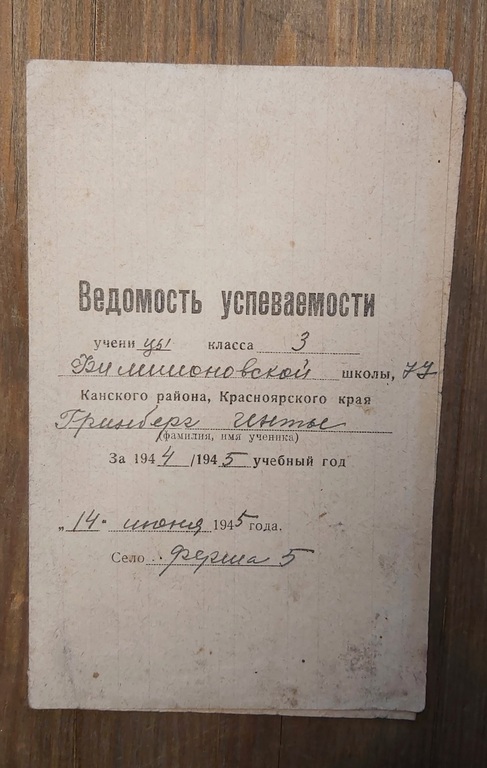 Ведомость успеваемости
учени цы класса 3
Филимоновской школы,
Канского района, Красноярского края
Гринберг Инты
(фамилия, имя ученика)
За 1944/1945 учебный год
„14" июня 1945 года.
Село ферма 5